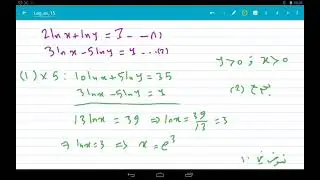 Log_ex_15
2lnx + lny = 7 -- (1)
3lnx - 5lny = 4 ... (2)
y>0 ; x>0
(1) × 5 : 10lnx + 5lny = 35
3lnx - 5lny = 4
13lnx = 39 ⇒ lnx = 39/13 = 3
⇒ lnx = 3 ⇒ x = e³